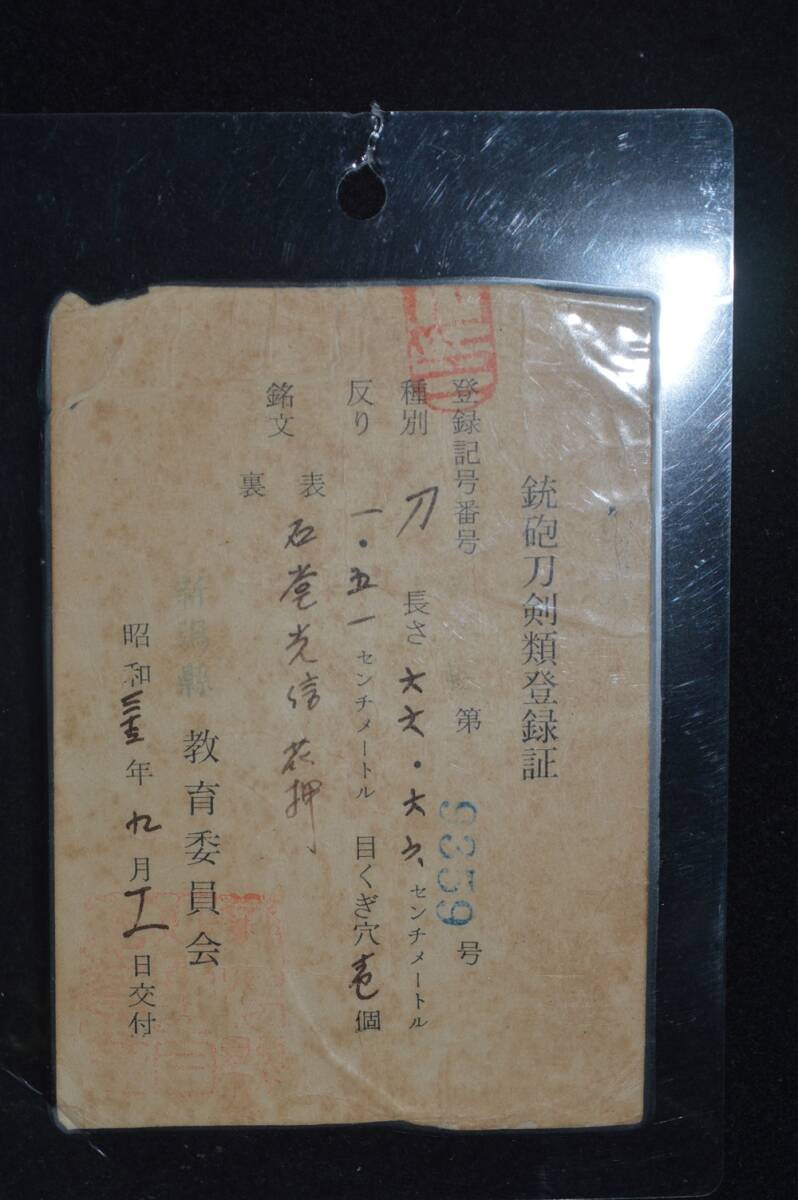 銃砲刀剣類登録証
登録記号番号 第 9359 号
種別 刀 長さ 六六・六六 センチメートル
反り 一・五一 センチメートル 目くぎ穴 壱 個
銘文 表 石堂光信 花押
裏
新潟県 教育委員会
昭和 年 九月 日交付